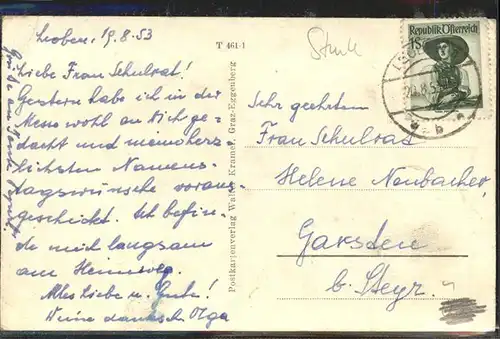 Leoben, 19.8.53
Liebe Frau Schulrat!
Gestern habe ich in der
Messe wohl an Dich ge-
dacht und meine herz-
lichsten Namens-
tagswünsche voraus-
geschickt. Ich befin-
de mich langsam
am Heimweg.
Alles Liebe u. Gute!
Deine dankb. Olga
Grüße an
T 461-1
Postkartenverlag Walter Kramer, Graz-Eggenberg
Republik Österreich
1S
Sehr geehrten
Frau Schulrat
Helene Neubacher
Garsten
b. Steyr.